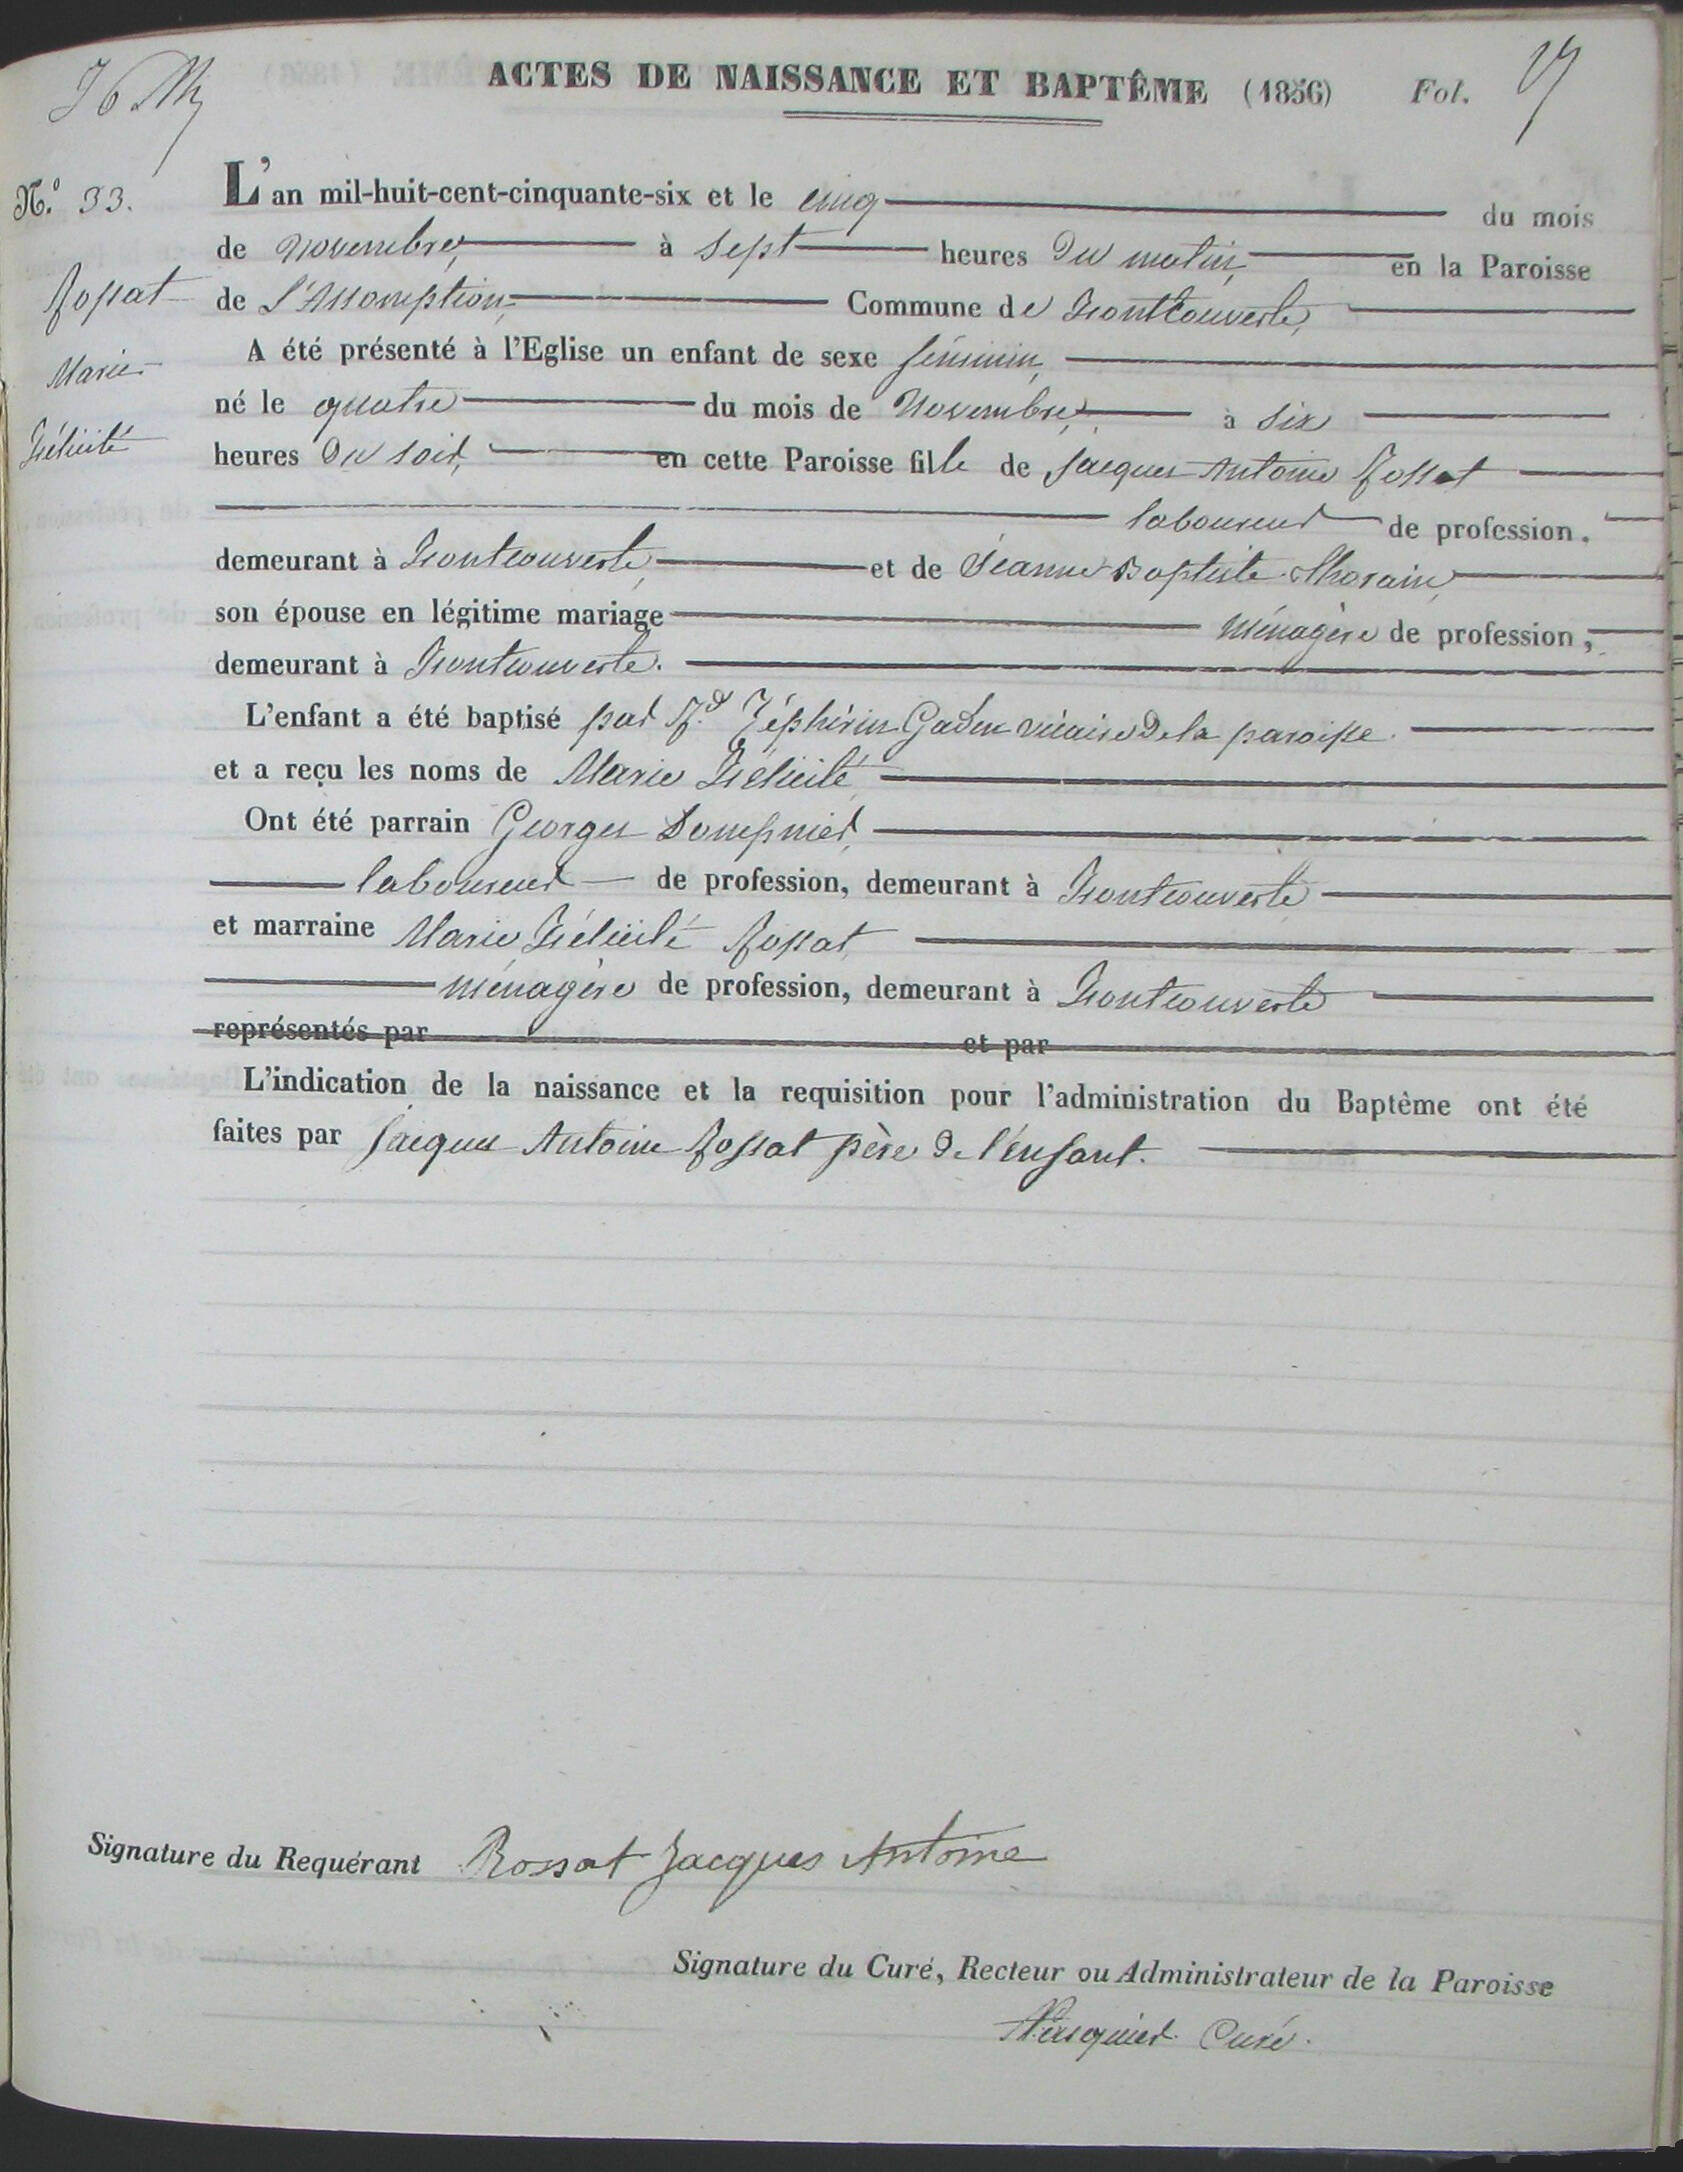 ACTES DE NAISSANCE ET BAPTÊME (1856) Fol. 17
N.º 33.
L'an mil-huit-cent-cinquante-six et le cinq du mois
de Novembre, à sept heures du matin, en la Paroisse
Rossat de l'Assomption, Commune de Fontcouverte,
A été présenté à l'Eglise un enfant de sexe féminin,
Marie
né le quatre du mois de Novembre, à six
Félicité
heures du soir, en cette Paroisse fille de Jacques Antoine Rossat
laboureur de profession.
demeurant à Fontcouverte, et de Jeanne Baptiste
son épouse en légitime mariage ménagère de profession,
demeurant à Fontcouverte.
L'enfant a été baptisé par R.d Zéphirin vicaire de la paroisse.
et a reçu les noms de Marie Félicité
Ont été parrain Georges Dompnier,
laboureur de profession, demeurant à Fontcouverte
et marraine Marie Félicité Rossat,
ménagère de profession, demeurant à Fontcouverte
représentés par et par
L'indication de la naissance et la requisition pour l'administration du Baptême ont été
faites par Jacques Antoine Rossat père de l'enfant.
Signature du Requérant Rossat Jacques Antoine
Signature du Curé, Recteur ou Administrateur de la Paroisse
Curé.